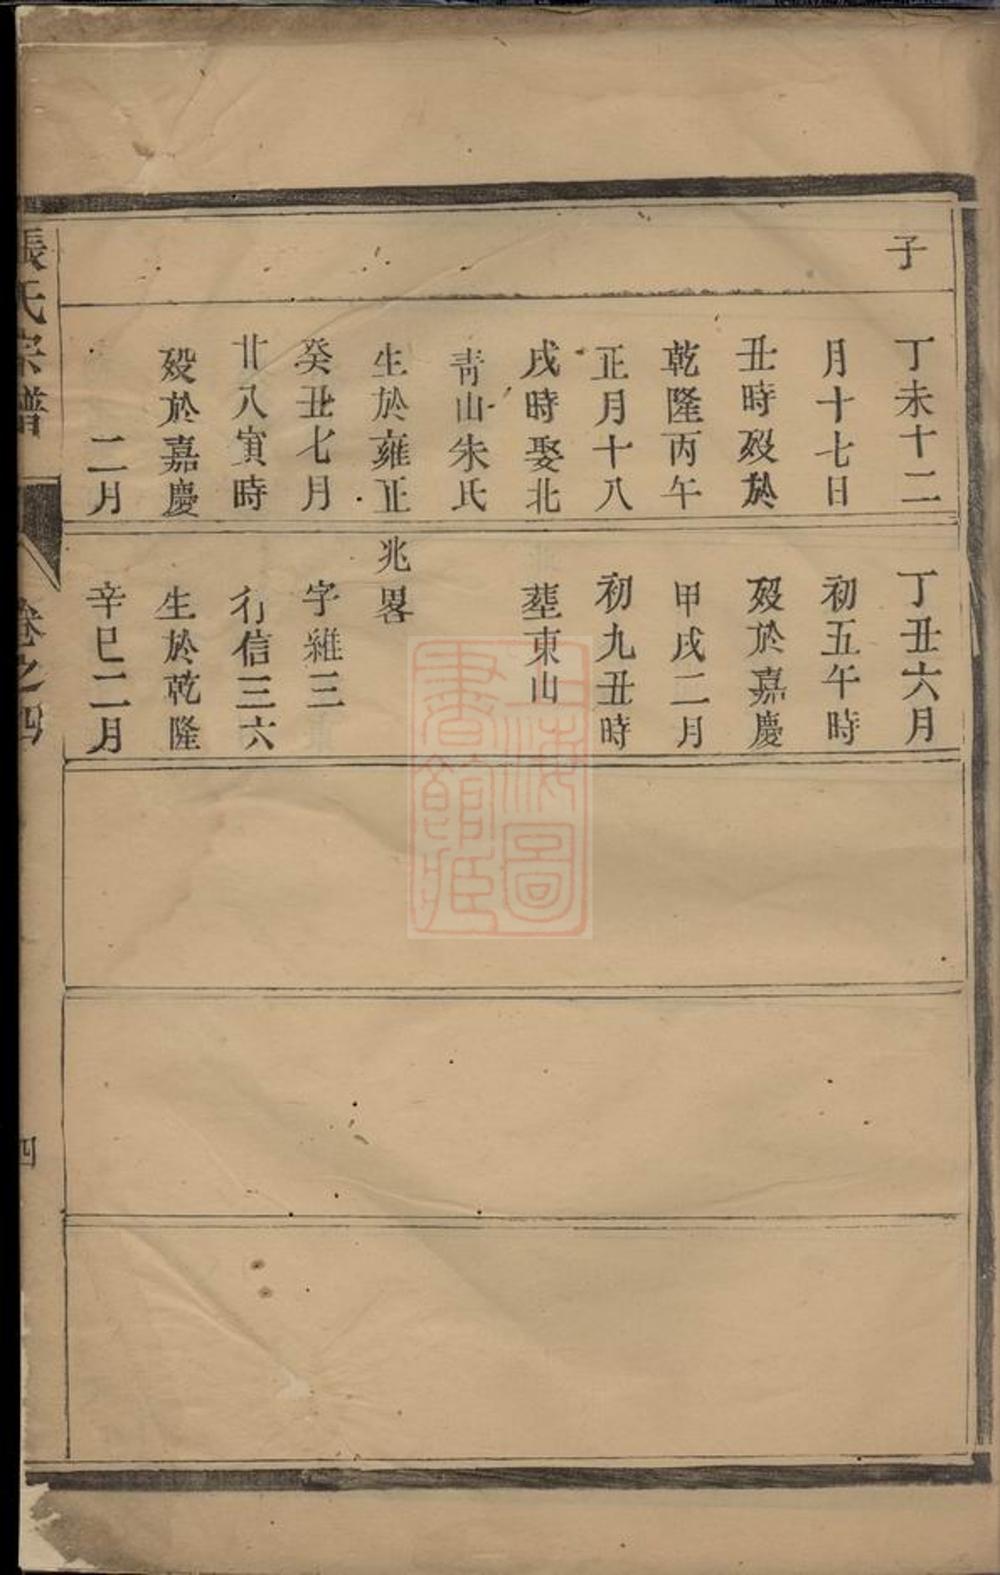 子
丁未十二
月十七日
丑時歿於
乾隆丙午
正月十八
戌時娶北
青山朱氏
生於雍正
癸丑七月
廿八寅時
歿於嘉慶
二月
丁丑六月
初五午時
歿於嘉慶
甲戌二月
初九丑時
塟東山
兆畧
字維三
行信三六
生於乾隆
辛巳二月
張氏宗譜
卷之四
四
上海圖
書館藏